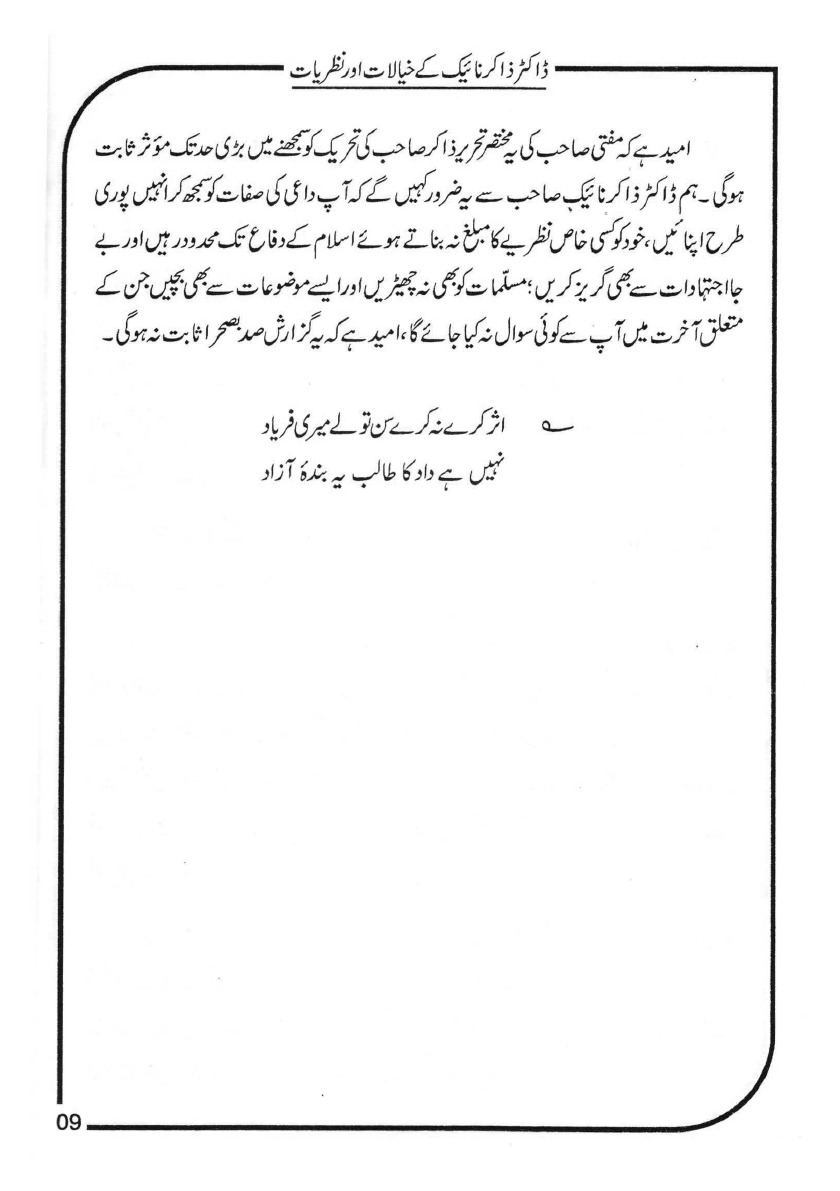 ڈاکٹر ذاکر نائیک کے خیالات اور نظریات
امید ہے کہ مفتی صاحب کی یہ مختصر تحریر ذاکر صاحب کی تحریک کو سمجھنے میں بڑی حد تک مؤثر ثابت
ہوگی۔ ہم ڈاکٹر ذاکر نائیک صاحب سے یہ ضرور کہیں گے کہ آپ داعی کی صفات کو سمجھ کر انہیں پوری
طرح اپنائیں، خود کو کسی خاص نظریے کا مبلغ نہ بناتے ہوئے اسلام کے دفاع تک محدود رہیں اور بے
جا اجتہادات سے بھی گریز کریں؛ مسلّمات کو بھی نہ چھیڑیں اور ایسے موضوعات سے بھی بچیں جن کے
متعلق آخرت میں آپ سے کوئی سوال نہ کیا جائے گا، امید ہے کہ یہ گزارش صد بصحرا ثابت نہ ہوگی۔
؎ اثر کرے نہ کرے سن تو لے میری فریاد
نہیں ہے داد کا طالب یہ بندۂ آزاد
09